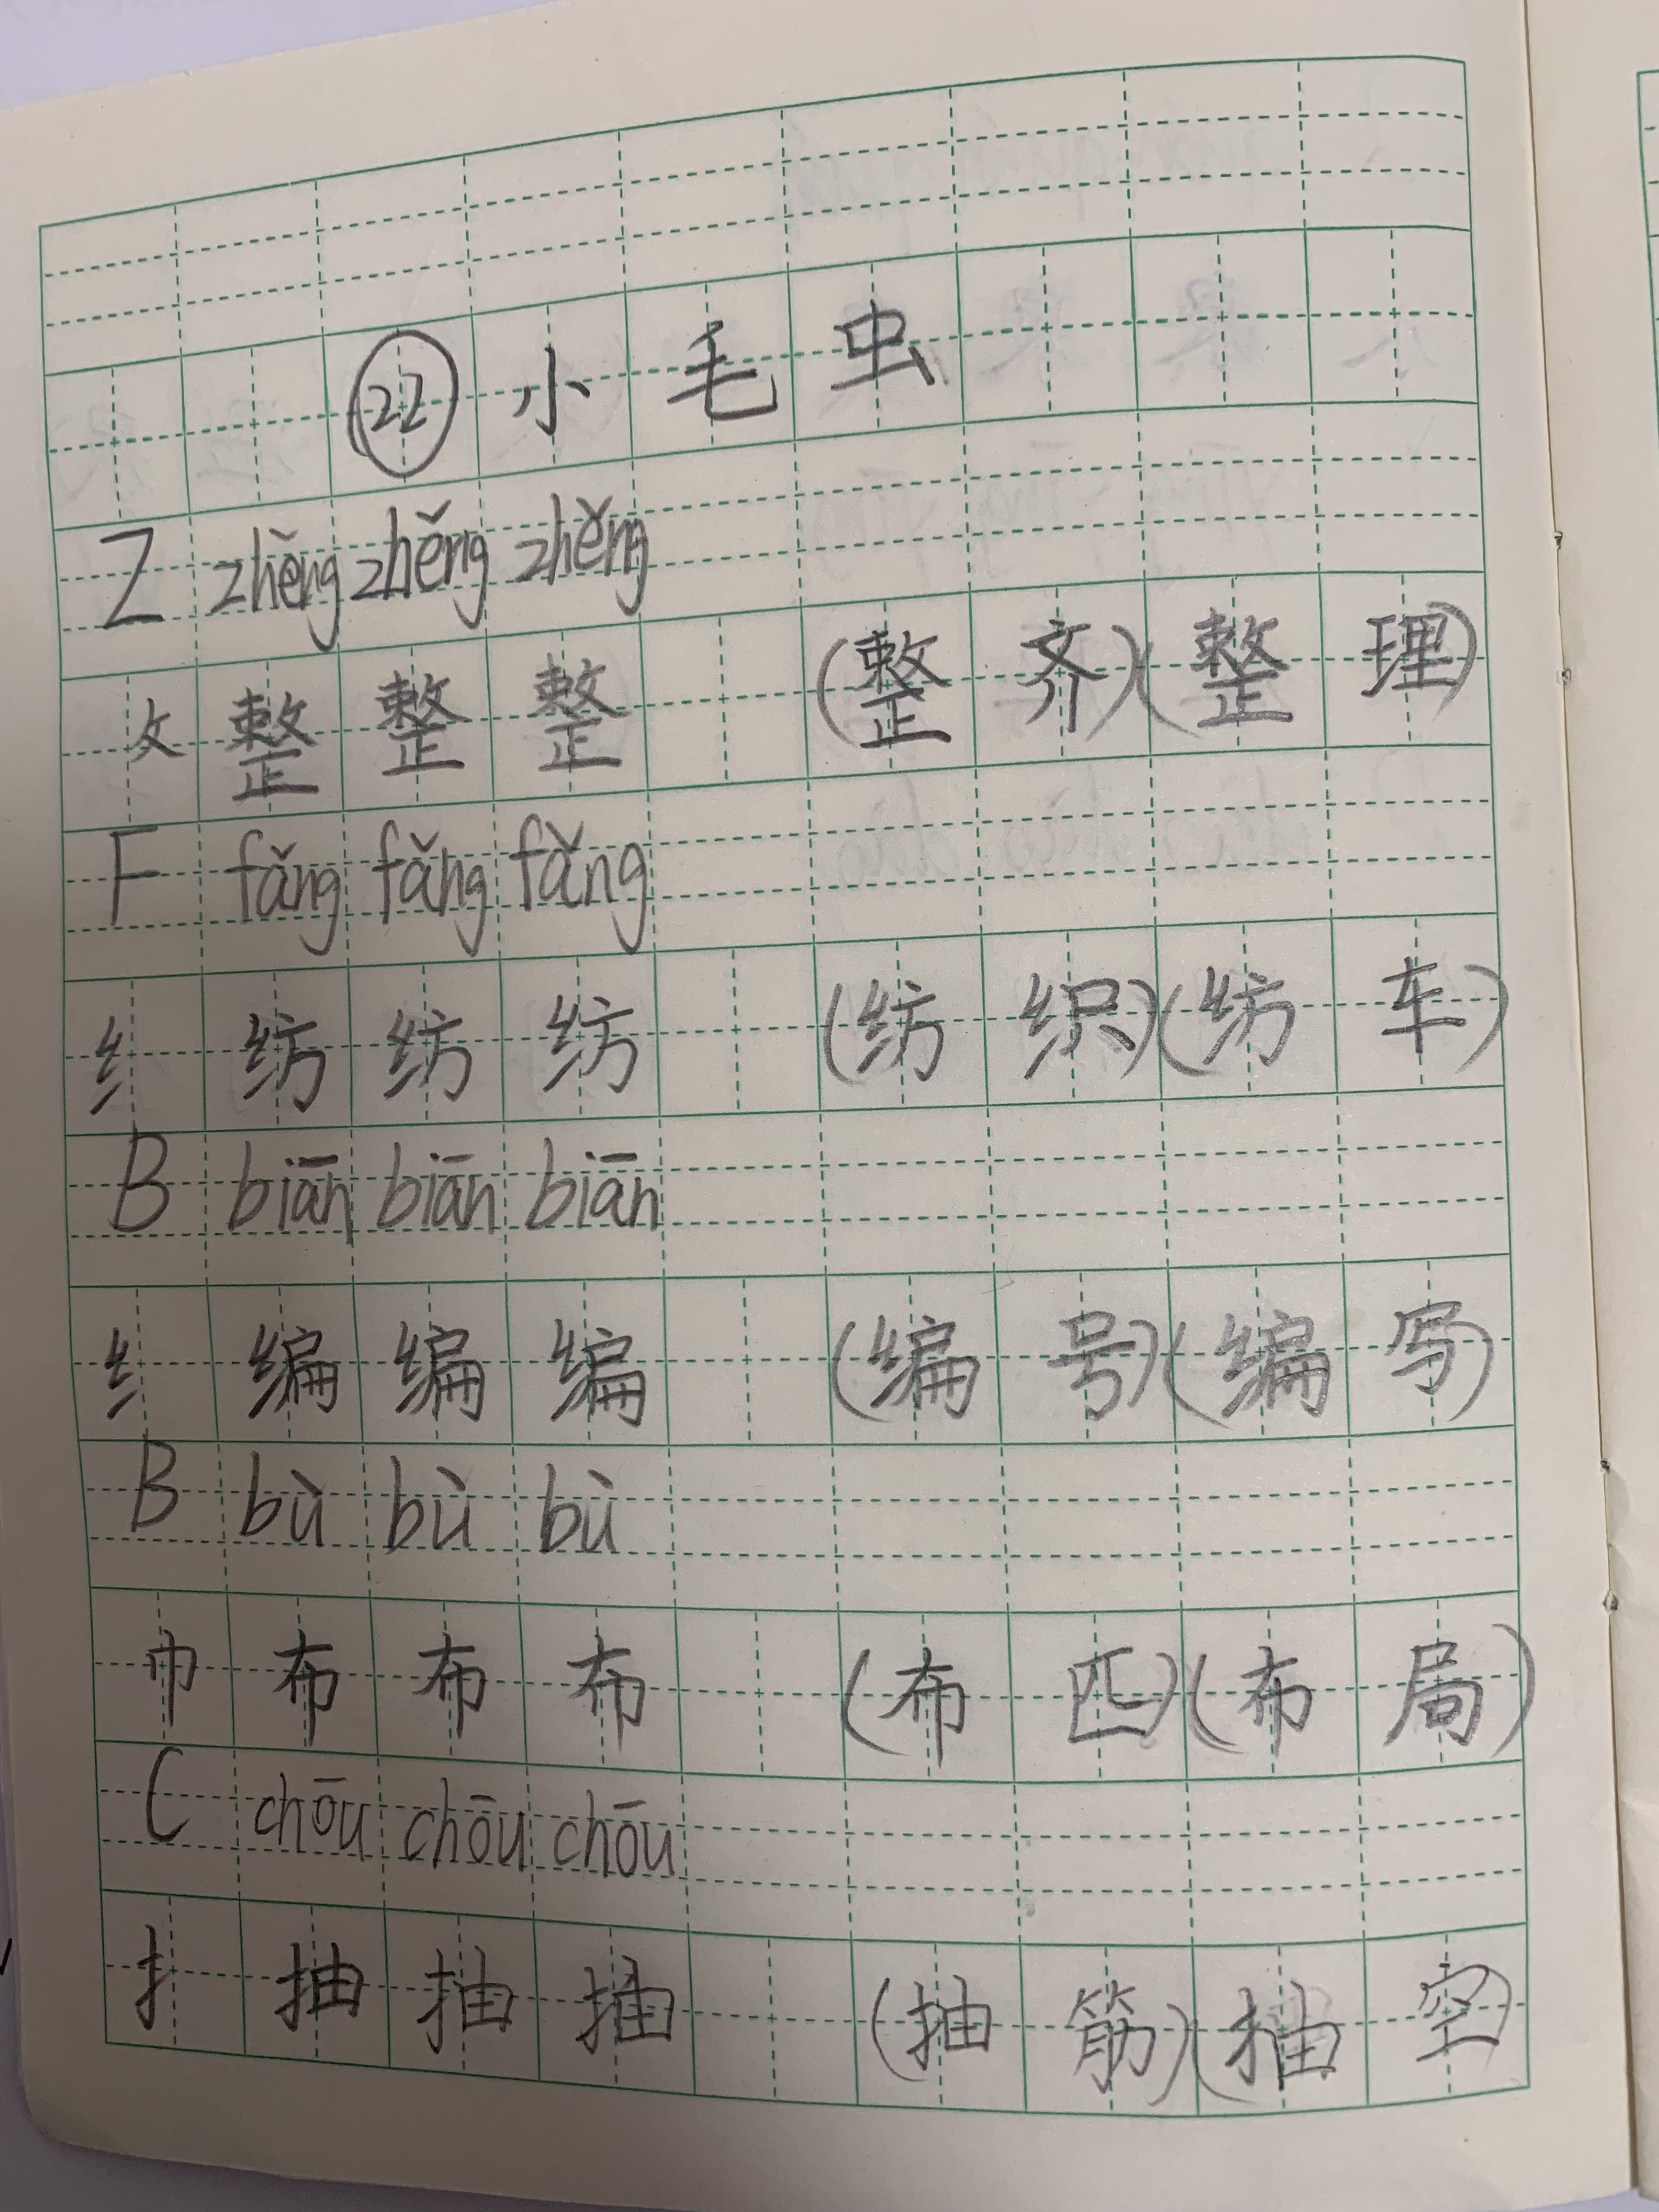 22 小毛虫
Z zhěng zhěng zhěng
攵 整 整 整 (整齐)(整理)
F fǎng fǎng fǎng
纟 纺 纺 纺 (纺织)(纺车)
B biān biān biān
纟 编 编 编 (编号)(编写)
B bù bù bù
巾 布 布 布 (布匹)(布局)
C chōu chōu chōu
扌 抽 抽 抽 (抽筋)(抽空)